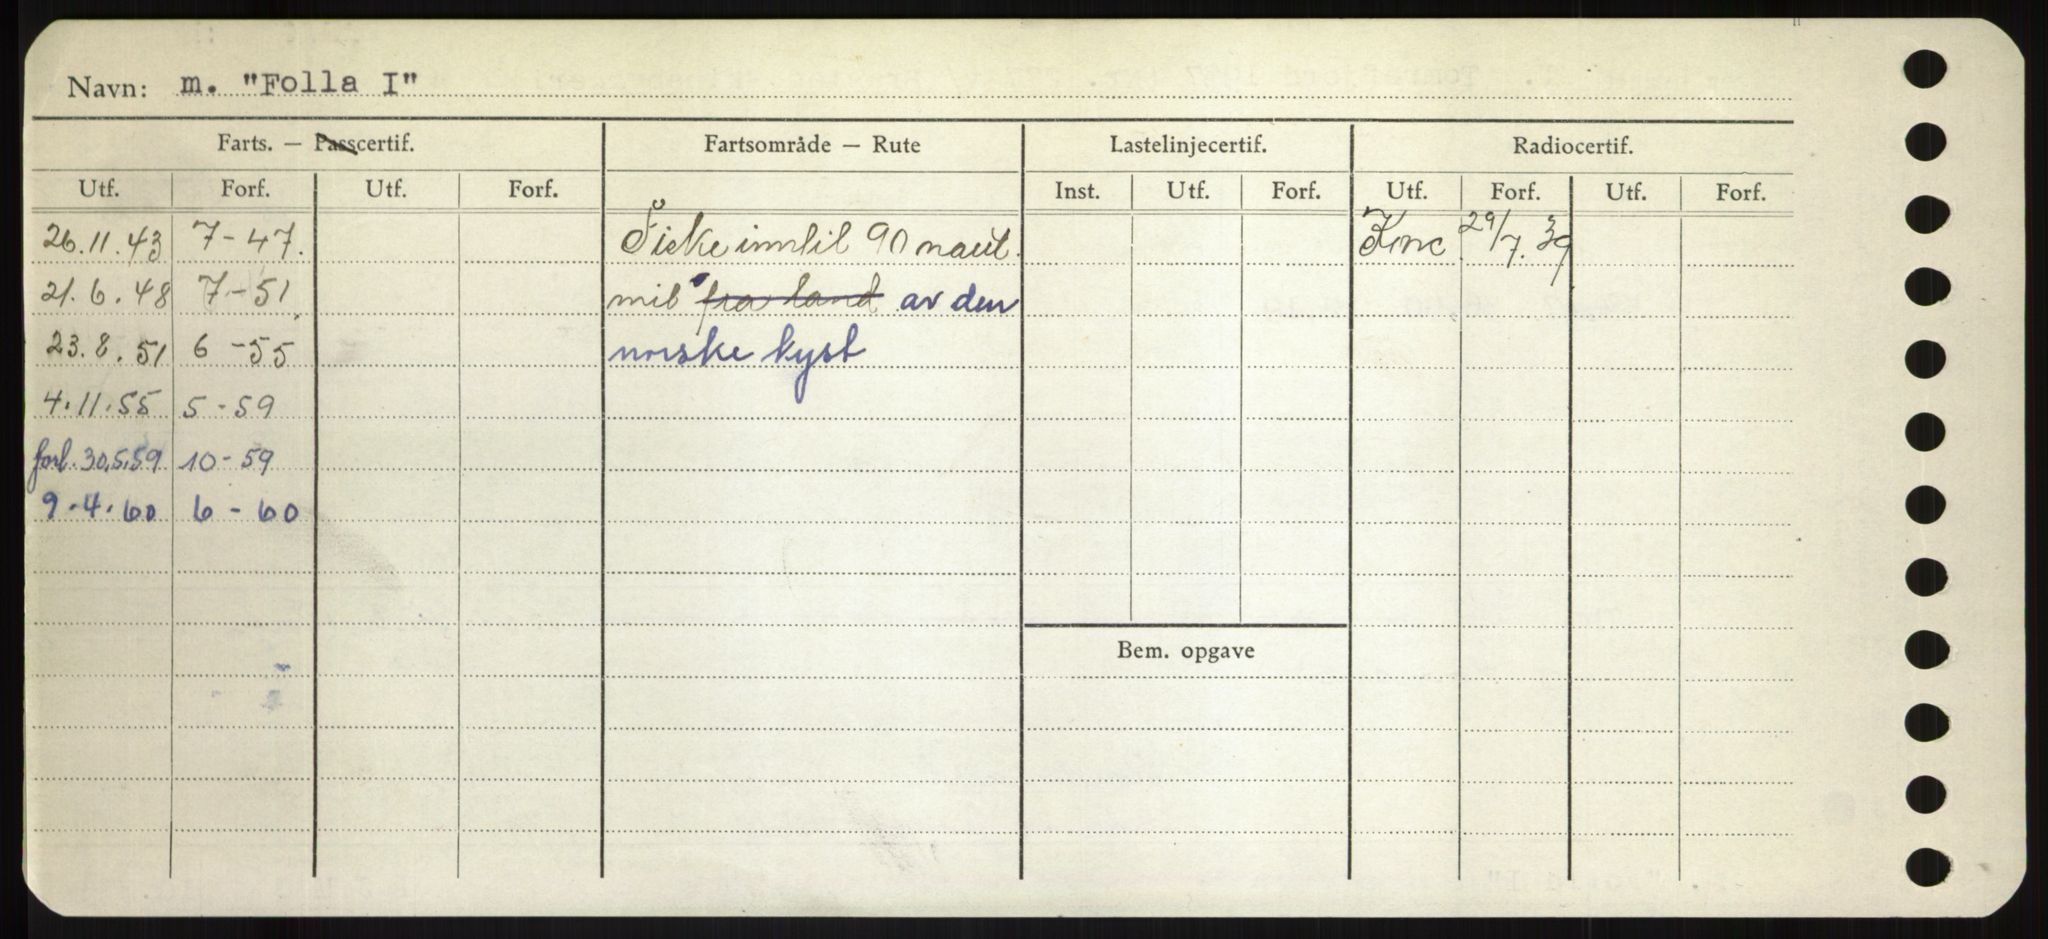 Navn: m. "Folla I"
Farts. — Passcertif. Fartsområde — Rute Lastelinjecertif. Radiocertif.
Utf. Forf. Utf. Forf. Inst. Utf. Forf. Utf. Forf. Utf. Forf.
26.11.43 7-47. Fiske inntil 90 naut. 29/7.39
21.6.48 7-51. mil fra land av den
23.8.51 6-55 norske kyst
4.11.55 5-59
forl. 30.5.59 10-59
9.4.60 6-60
Bem. opgave